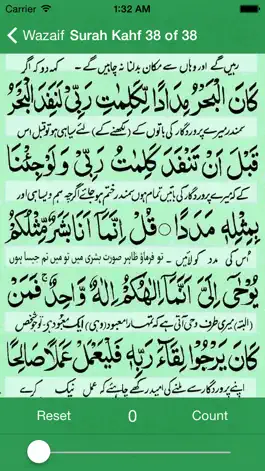 Carrier 1:32 AM
Wazaif Surah Kahf 38 of 38
رہیں گے اور وہاں سے مکان بدلنا نہ چاہیں گے - کہہ دو کہ اگر
كَانَ الْبَحْرُ مِدَادًا لِّكَلِمٰتِ رَبِّيْ لَنَفِدَ الْبَحْرُ
سمندر میرے پروردگار کی باتوں کے (لکھنے کے) لئے سیاہی ہو تو قبل اس
قَبْلَ اَنْ تَنْفَدَ كَلِمٰتُ رَبِّيْ وَلَوْ جِئْنَا
کے کہ میرے پروردگار کی باتیں تمام ہوں سمندر ختم ہو جائے اگرچہ ہم ویسا ہی اور
بِمِثْلِهٖ مَدَدًا ○ قُلْ اِنَّمَاۤ اَنَا بَشَرٌ مِّثْلُكُمْ
اس کی مدد کو لائیں - تو فرماؤ ظاہر صورت بشری میں تو میں تم جیسا ہوں
يُوْحٰۤى اِلَيَّ اَنَّمَاۤ اِلٰهُكُمْ اِلٰهٌ وَّاحِدٌ ۚ فَمَنْ
(البتہ) میری طرف وحی آتی ہے کہ تمہارا معبود (وہی) ایک معبود ہے تو جو شخص
كَانَ يَرْجُوْا لِقَآءَ رَبِّهٖ فَلْيَعْمَلْ عَمَلًا صَالِحًا
اپنے پروردگار سے ملنے کی امید رکھے چاہئے کہ عمل نیک کرے
Reset 0 Count